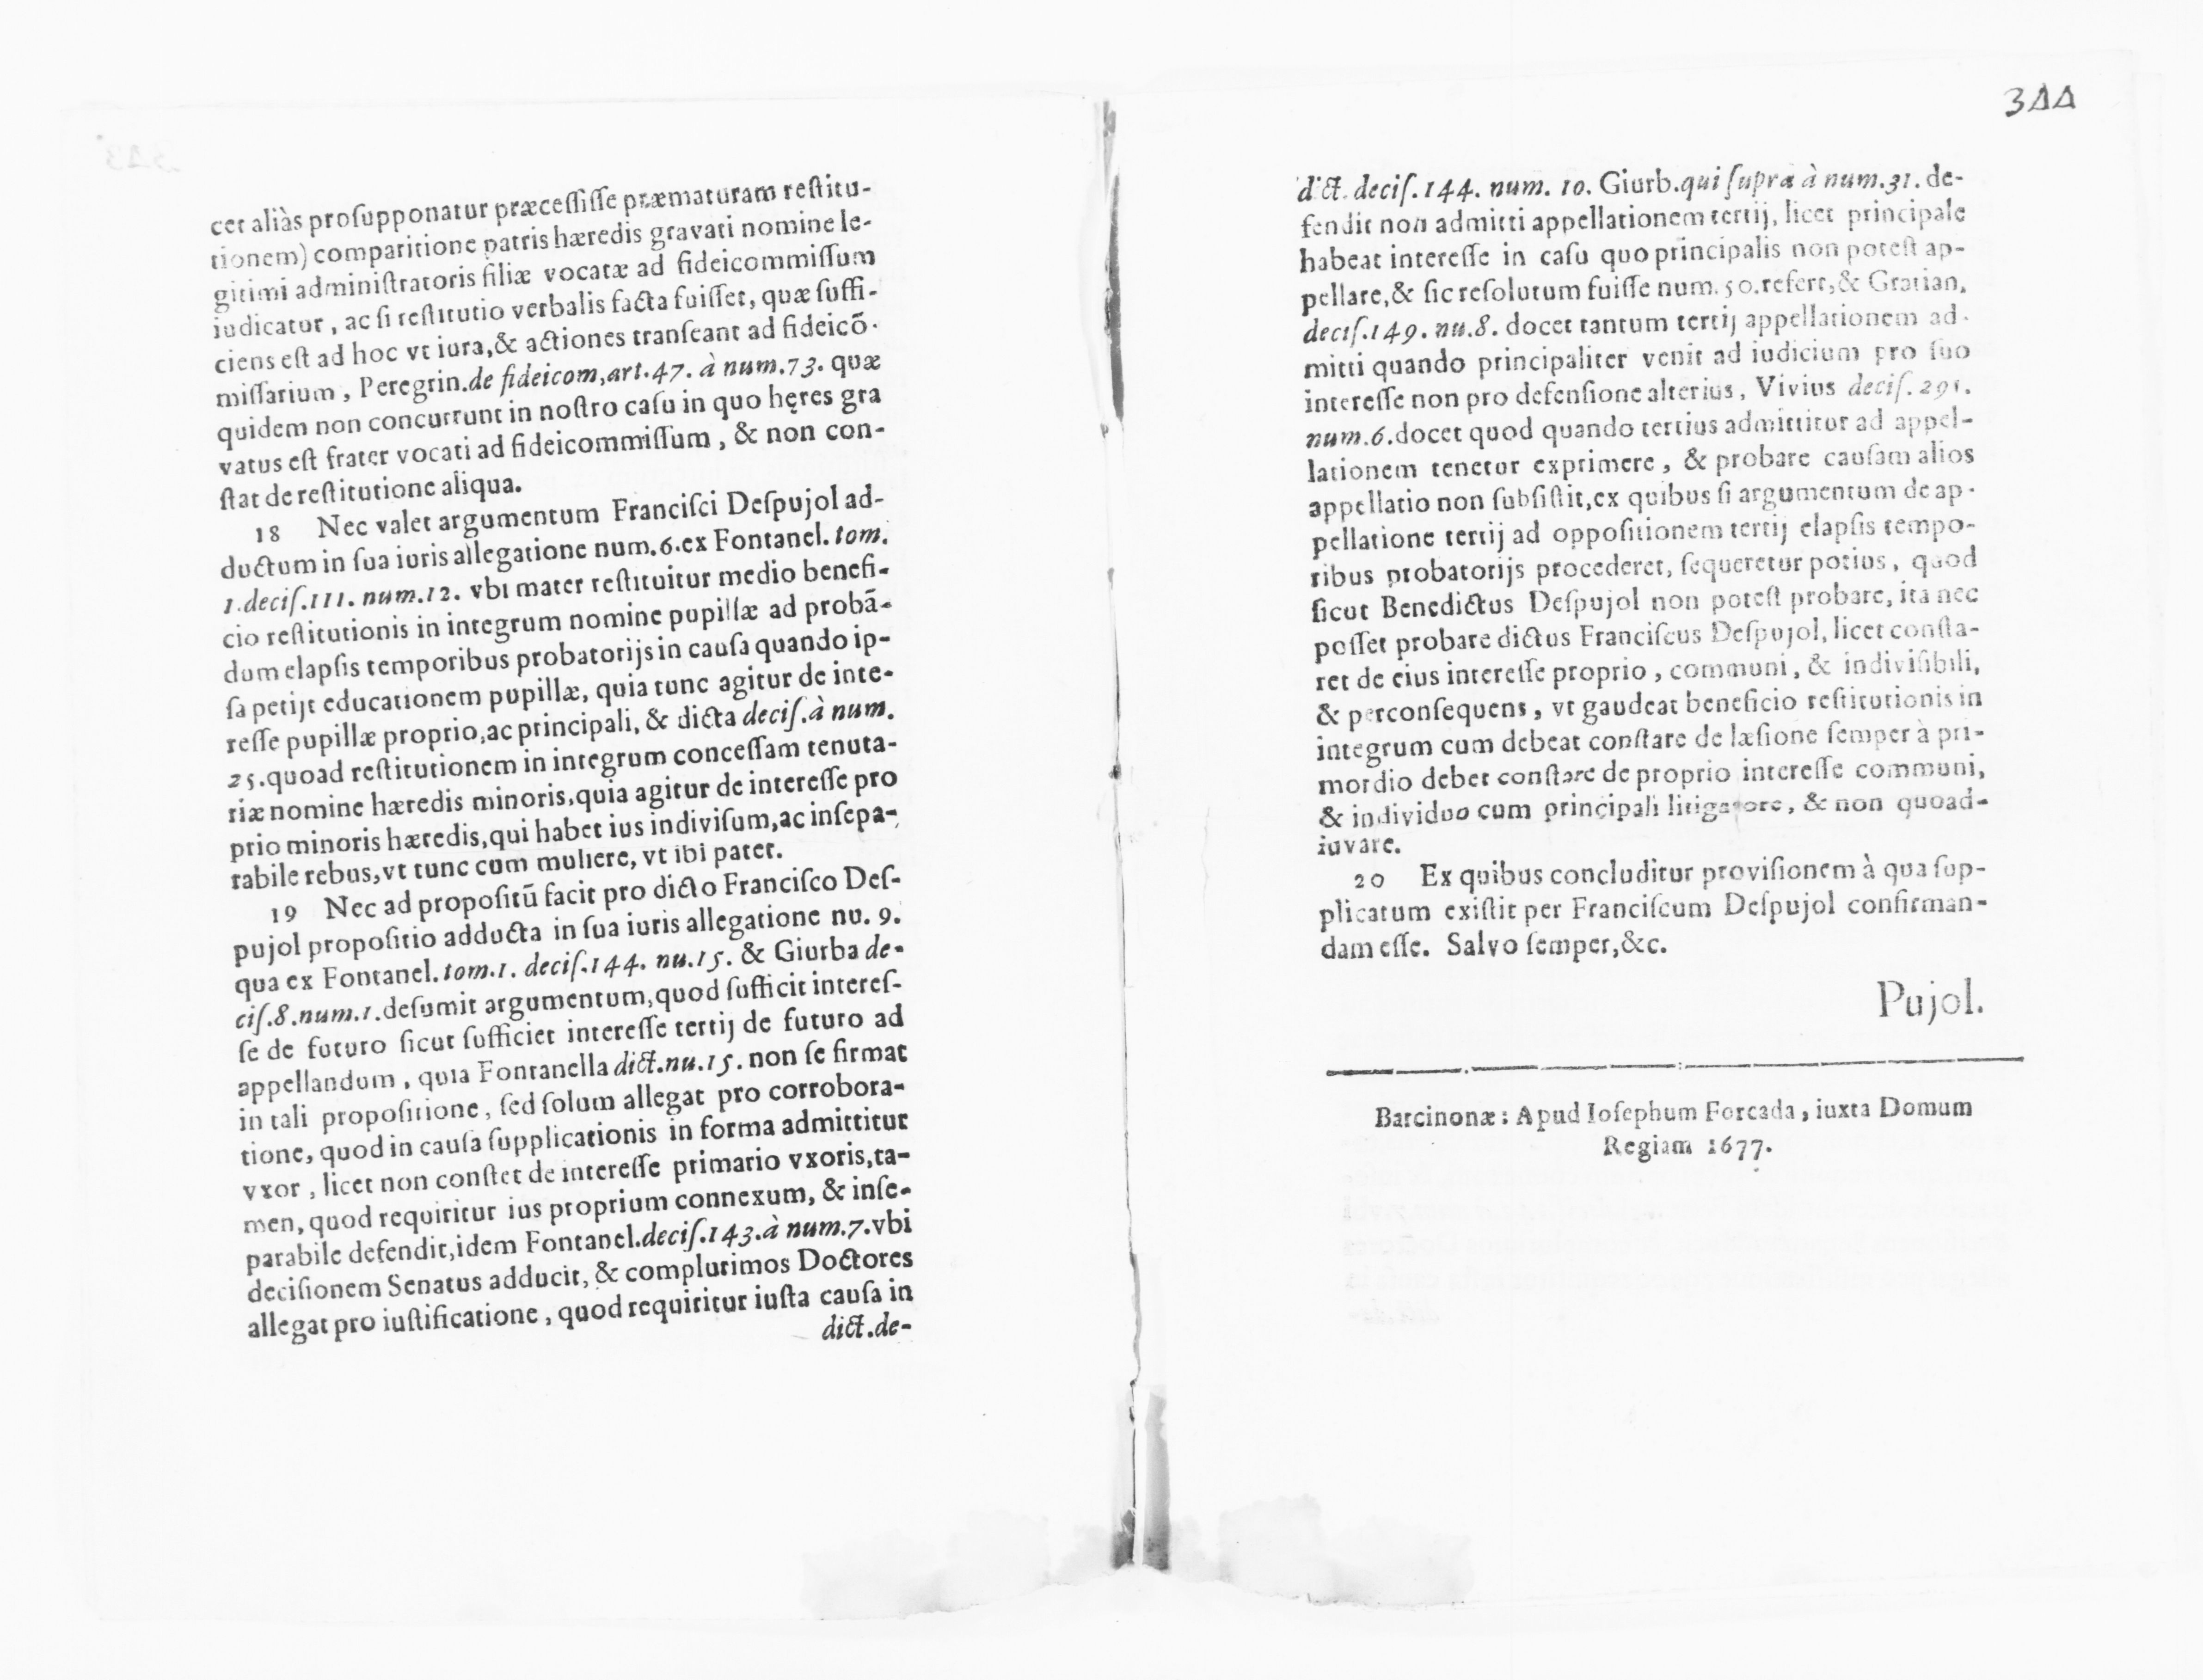 cet aliàs prosupponatur præcessisse præmaturam restitu-
tionem) comparitione patris hæredis gravati nomine le-
gitimi administratoris filiæ vocatæ ad fideicommissum
iudicatur, ac si restitutio verbalis facta fuisset, quæ suffi-
ciens est ad hoc vt iura,& actiones transeant ad fideicõ-
missarium, Peregrin.de fideicom,art.47. à num.73. quæ
quidem non concurrunt in nostro casu in quo hęres gra
vatus est frater vocati ad fideicommissum, & non con-
stat de restitutione aliqua.
18 Nec valet argumentum Francisci Despujol ad-
ductum in sua iuris allegatione num.6.ex Fontanel. tom.
1.decis.111. num.12. vbi mater restituitur medio benefi-
cio restitutionis in integrum nomine pupillæ ad probã-
dum elapsis temporibus probatorijs in causa quando ip-
sa petijt educationem pupillæ, quia tunc agitur de inte-
resse pupillæ proprio,ac principali, & dicta decis.à num.
25.quoad restitutionem in integrum concessam tenuta-
riæ nomine hæredis minoris,quia agitur de interesse pro
prio minoris hæredis,qui habet ius indivisum,ac insepa-
rabile rebus,vt tunc cum muliere, vt ibi patet.
19 Nec ad propositũ facit pro dicto Francisco Des-
pujol propositio adducta in sua iuris allegatione nu. 9.
qua ex Fontanel.tom.1. decis.144. nu.15. & Giurba de-
cis.8.num.1.desumit argumentum,quod sufficit interes-
se de futuro sicut sufficiet interesse tertij de futuro ad
appellandum, quia Fontanella dict.nu.15. non se firmat
in tali propositione, sed solum allegat pro corrobora-
tione, quod in causa supplicationis in forma admittitur
vxor, licet non constet de interesse primario vxoris,ta-
men, quod requiritur ius proprium connexum, & inse-
parabile defendit,idem Fontanel.decis.143.à num.7.vbi
decisionem Senatus adducit, & complurimos Doctores
allegat pro iustificatione, quod requiritur iusta causa in
dict.de-
344
dict. decis.144. num. 10. Giurb.qui supra à num.31. de-
fendit non admitti appellationem tertij, licet principale
habeat interesse in casu quo principalis non potest ap-
pellare,& sic resolutum fuisse num.50.refert,& Gratian.
decis.149. nu.8. docet tantum tertij appellationem ad-
mitti quando principaliter venit ad iudicium pro suo
interesse non pro defensione alterius, Vivius decis.291.
num.6.docet quod quando tertius admittitur ad appel-
lationem tenetur exprimere, & probare causam alios
appellatio non subsistit,ex quibus si argumentum de ap-
pellatione tertij ad oppositionem tertij elapsis tempo-
ribus probatorijs procederet, sequeretur potius, quod
sicut Benedictus Despujol non potest probare, ita nec
posset probare dictus Franciscus Despujol, licet consta-
ret de eius interesse proprio, communi, & indivisibili,
& perconsequens, vt gaudeat beneficio restitutionis in
integrum cum debeat constare de læsione semper à pri-
mordio debet constare de proprio interesse communi,
& individuo cum principali litigatore, & non quoad-
iuvare.
20 Ex quibus concluditur provisionem à qua sup-
plicatum existit per Franciscum Despujol confirman-
dam esse. Salvo semper,&c.
Pujol.
Barcinonæ: Apud Iosephum Forcada, iuxta Domum
Regiam 1677.